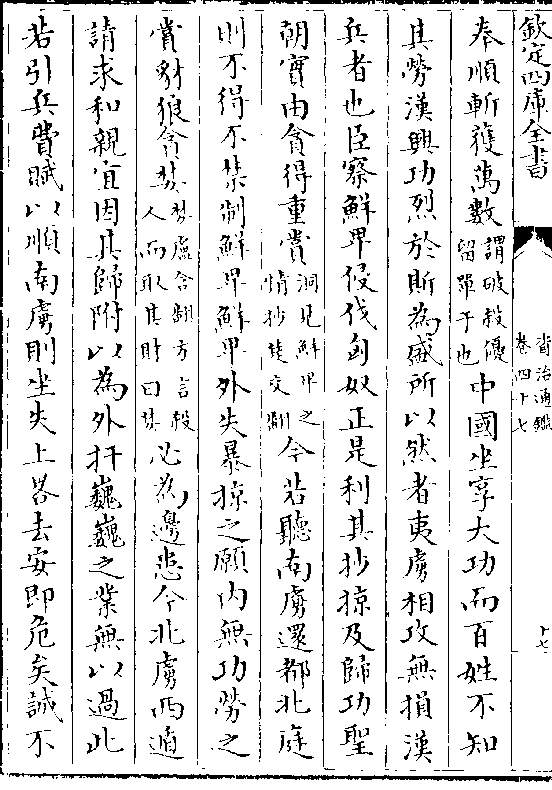 欽定四庫全書
資治通鑑
卷四十七
十七
奉順斬獲萬數謂破殺優留單于也中國坐享大功而百姓不知
其勞漢興功烈於斯為盛所以然者夷虜相攻無損漢
兵者也臣察鮮卑侵伐匈奴正是利其抄掠及歸功聖
朝實由貪得重賞洞見鮮卑之情抄楚交翻今若聽南虜還都北庭
則不得不禁制鮮卑鮮卑外失暴掠之願内無功勞之
賞豺狼貪婪婪盧含翻方言殺人而取其財曰婪必為邊患今北虜西遁
請求和親宜因其歸附以為外扞巍巍之業無以過此
若引兵費賦以順南虜則坐失上畧去安即危矣誠不